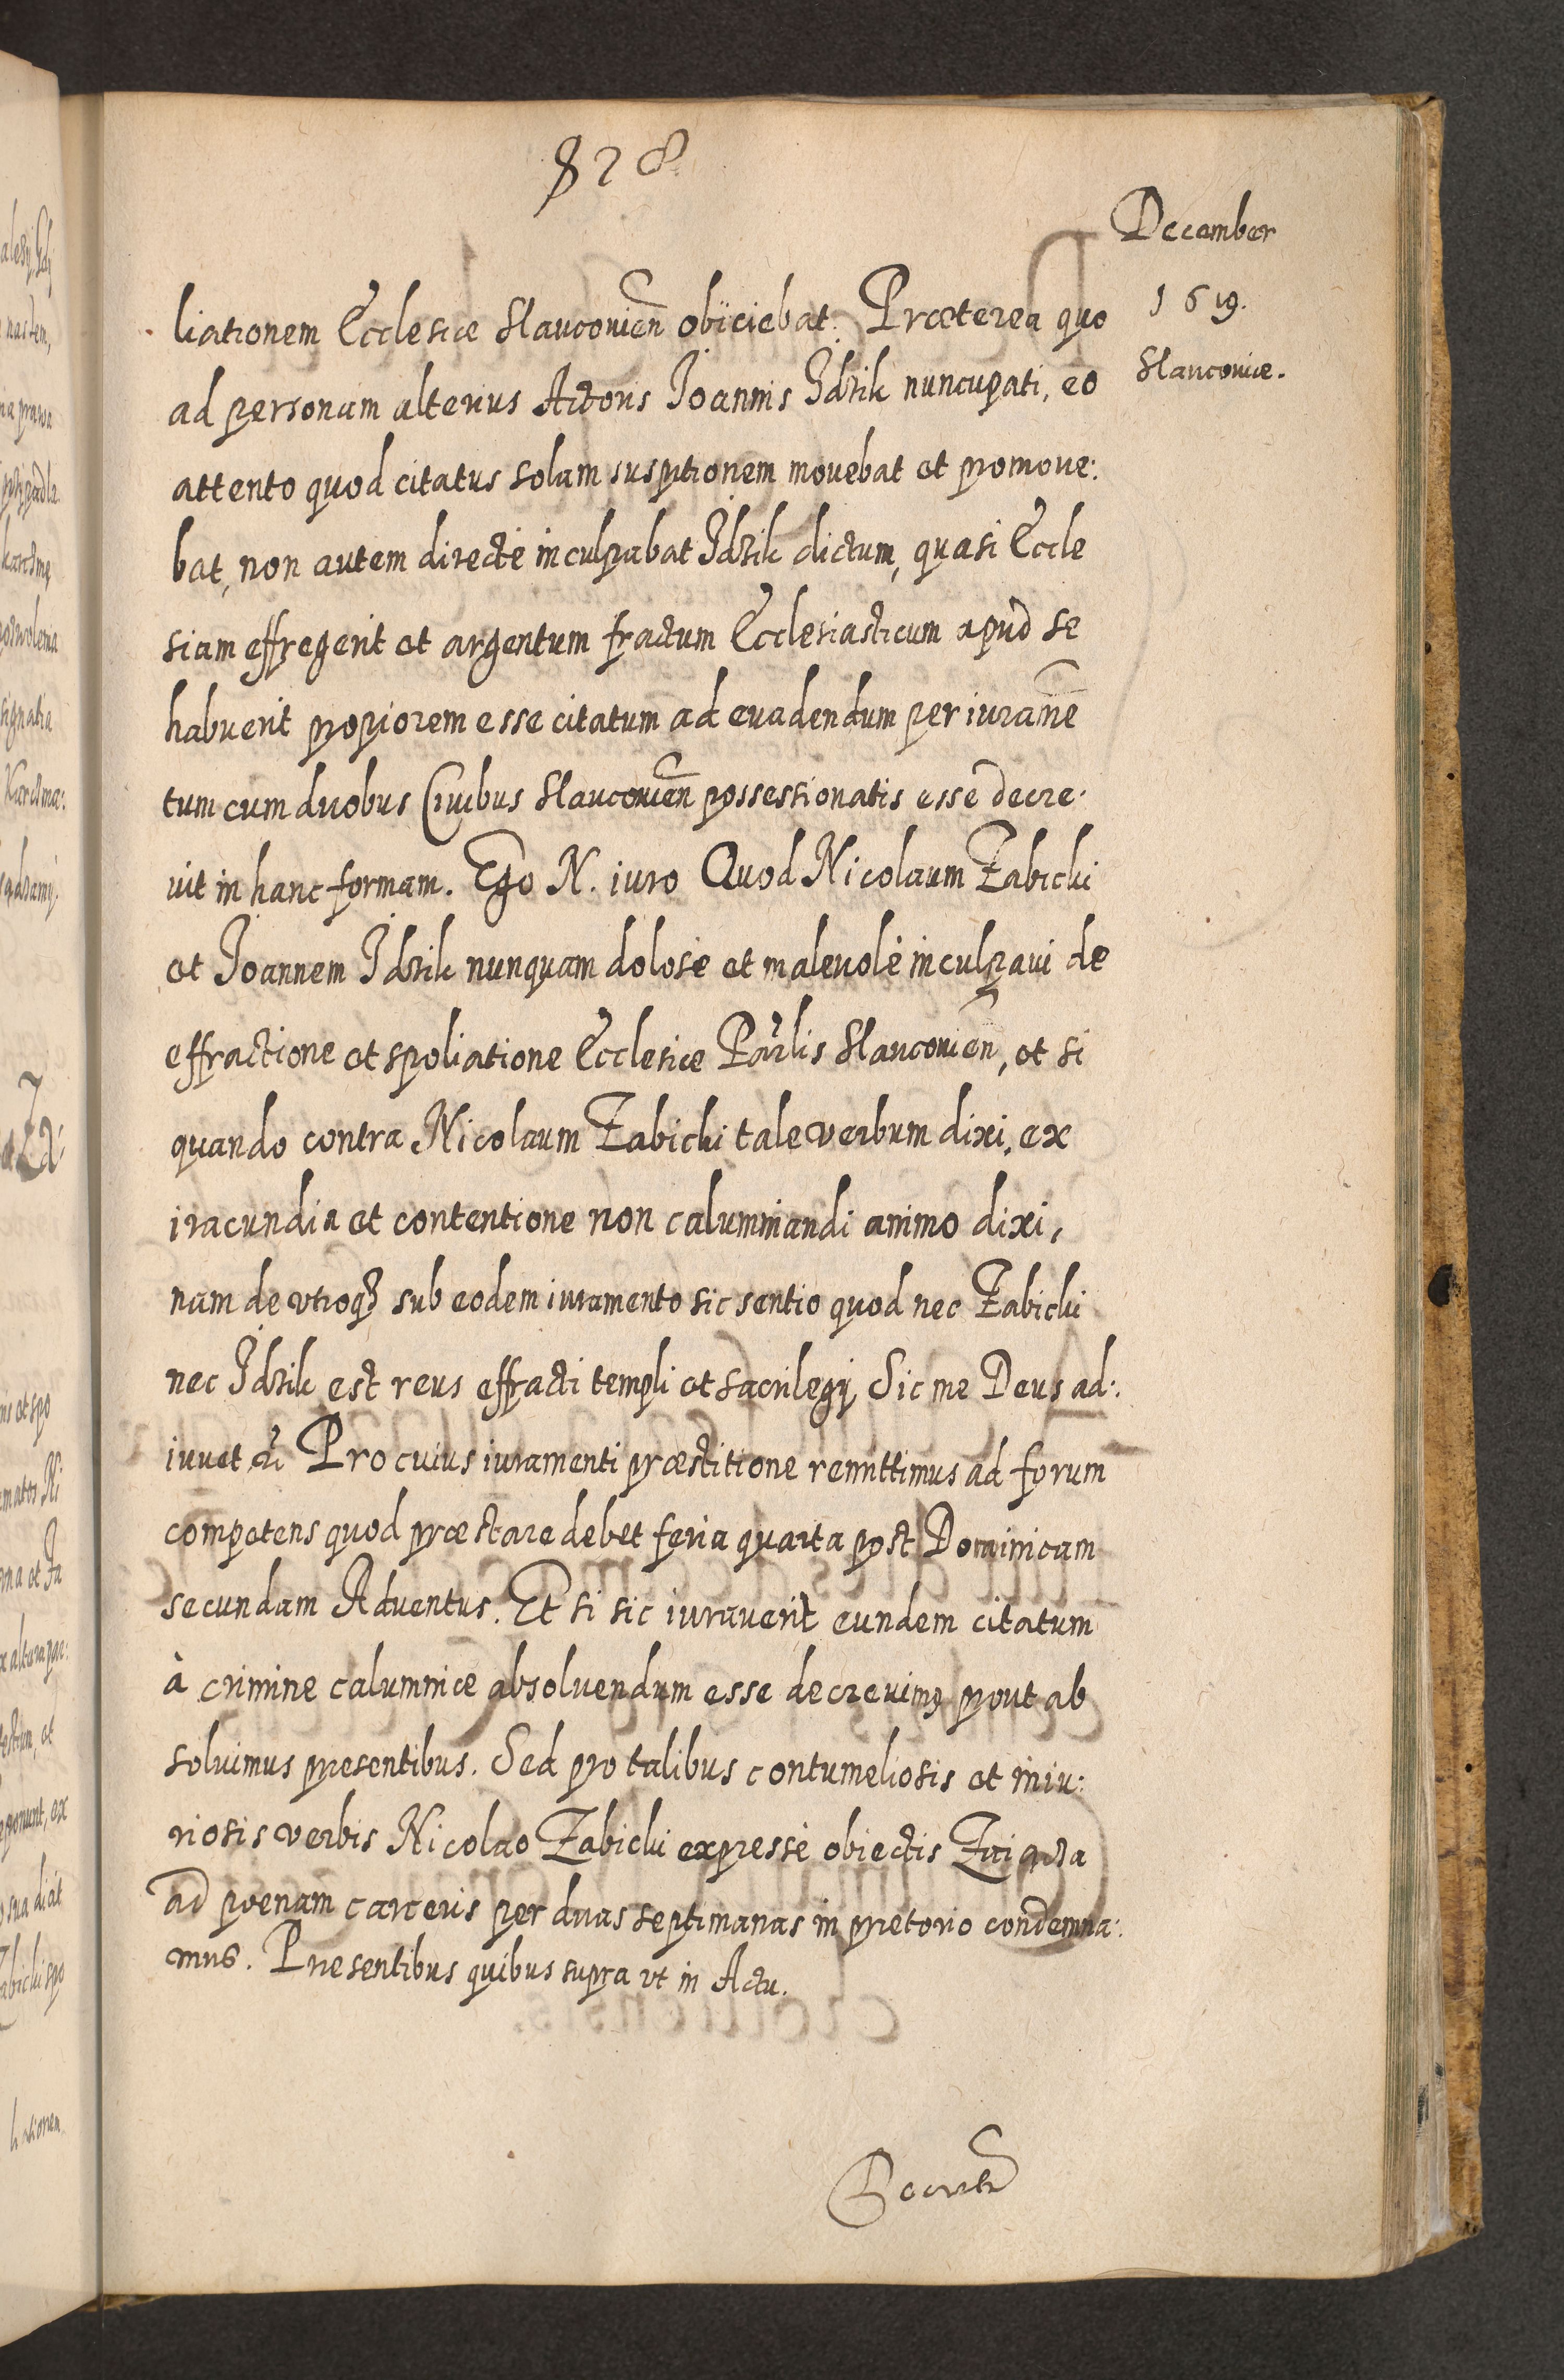 828
December
1619.
Slauconiæ.
liationem Ecclesiæ Slauconieñ obijciebat. Præterea quo
ad personam alterius Actoris Joannis Jdzik nuncupati, eo
attento quod citatus solam susptionem movebat et promoue:
bat, non autem directè inculpabat Jdzik dictum, quasi Eccle
siam effregerit et argentum fractum Ecclesiasticum apud se
habuerit propiorem esse citatum ad euadendum per iurame͞
tum cum duobus Ciuibus Slauconieñ possessionatis esse decre:
uit in hanc formam. Ego N. iuro Quod Nicolaum Zabicki
et Joannem Jdzik nunquam dolosè et maleuolè inculpaui de
effractione et spoliatione Ecclesiæ Parlis Slauconieñ, et si
quando contra Nicolaum Zabicki tale verbum dixi, ex
iracundia et contentione non calumniandi animo dixi,
nam de vtroqȝ sub eodem iuramento sic sentio quod nec Zabicki
nec Jdzik est reus effracti templi et sacrilegij Sic me Deus ad:
iuuet &c Pro cuius iuramenti præstitione remittimus ad forum
competens quod præstare debet feria quarta post Dominicam
secundam Aduentus. Et si sic iurauerit eundem citatum
à crimine calumniæ absoluendum esse decreuimꝰ prout ab
soluimus præsentibus. Sed pro talibus contumeliosis et iniu:
riosis verbis Nicolao Zabicki expressè obiectis Zaiąca
ad pœnam carceris per duas septimanas in prætorio condemna:
mus. Præsentibus quibus supra vt in Actu.